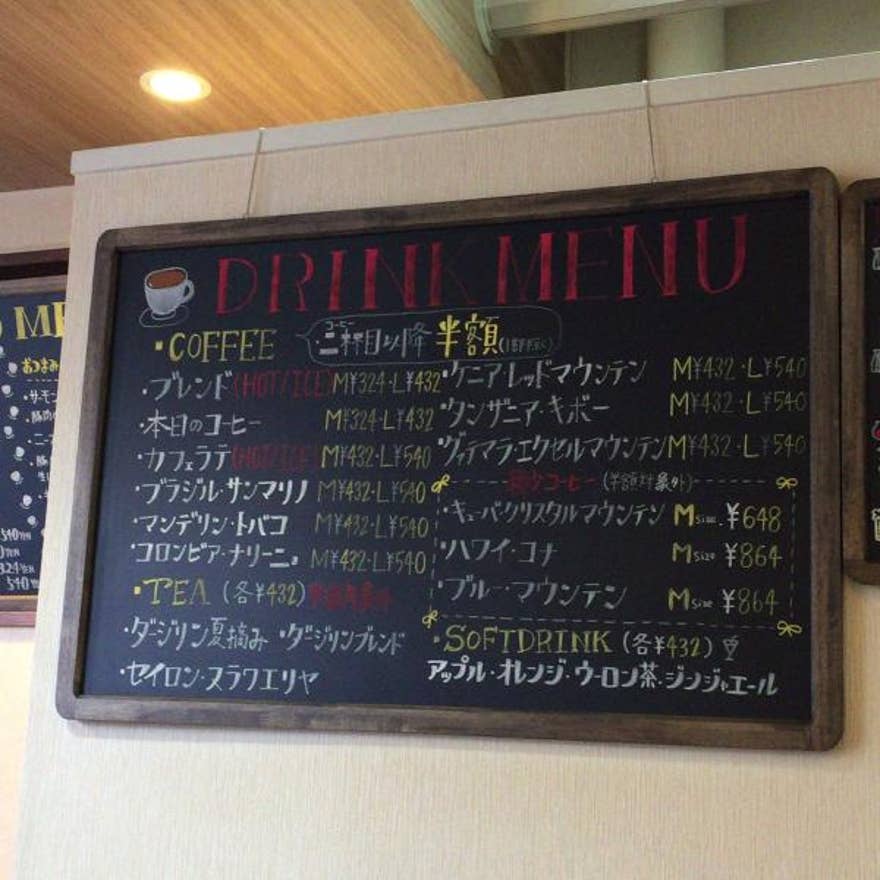 DRINK MENU
・COFFEE
コーヒー
二杯目以降 半額
・ブレンド(HOT/ICE) M¥324・L¥432
・本日のコーヒー M¥324・L¥432
・カフェラテ(HOT/ICE) M¥432・L¥540
・ブラジル・サンマリノ M¥432・L¥540
・マンデリン・トバコ M¥432・L¥540
・コロンビア・ナリーニョ M¥432・L¥540
・TEA (各¥432)
・ダージリン夏摘み ・ダージリンブレンド
・セイロン・ヌラワエリヤ
・ケニアレッドマウンテン M¥432・L¥540
・タンザニア・キボー M¥432・L¥540
・グァテマラ・エクセルマウンテン M¥432・L¥540
希少コーヒー (半額対象外)
・キューバクリスタルマウンテン M size ¥648
・ハワイ・コナ M size ¥864
・ブルー・マウンテン M size ¥864
・SOFTDRINK (各¥432)
アップル・オレンジ・ウーロン茶・ジンジャエール
おつまみ